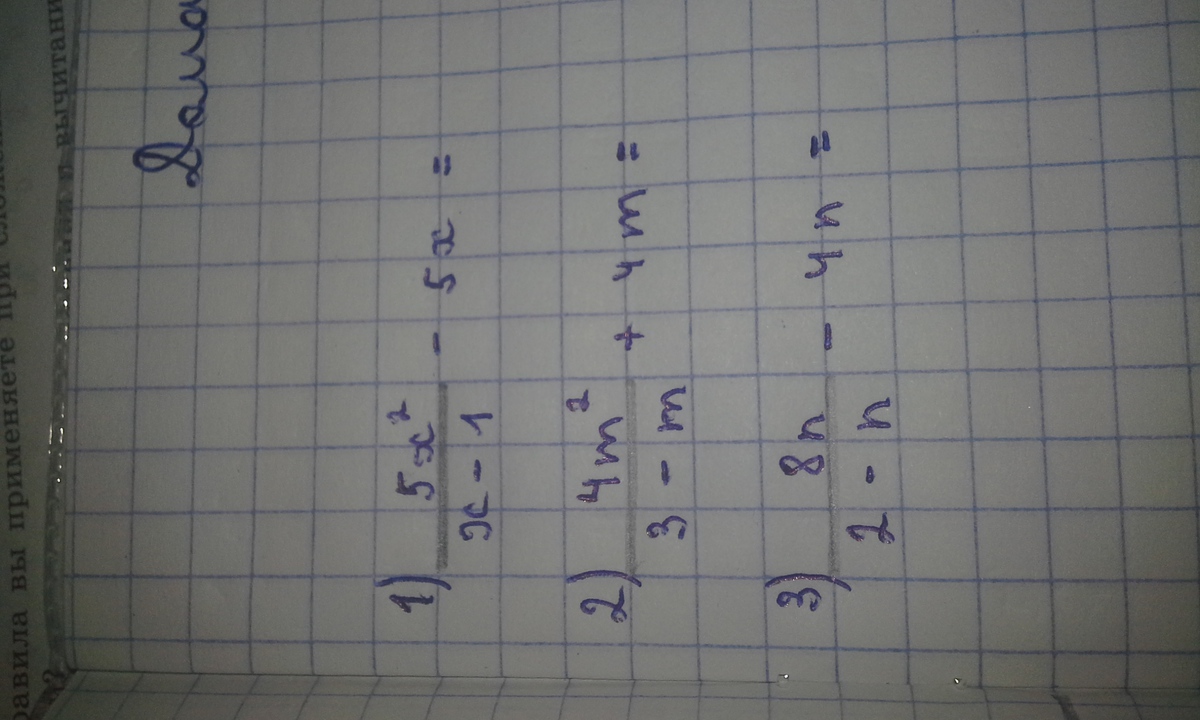 равила вы применяете при
вычитани
Дома
1) 5x² / x - 1 - 5x =
2) 4m² / 3 - m + 4m =
3) 8n / 2 - n - 4n =